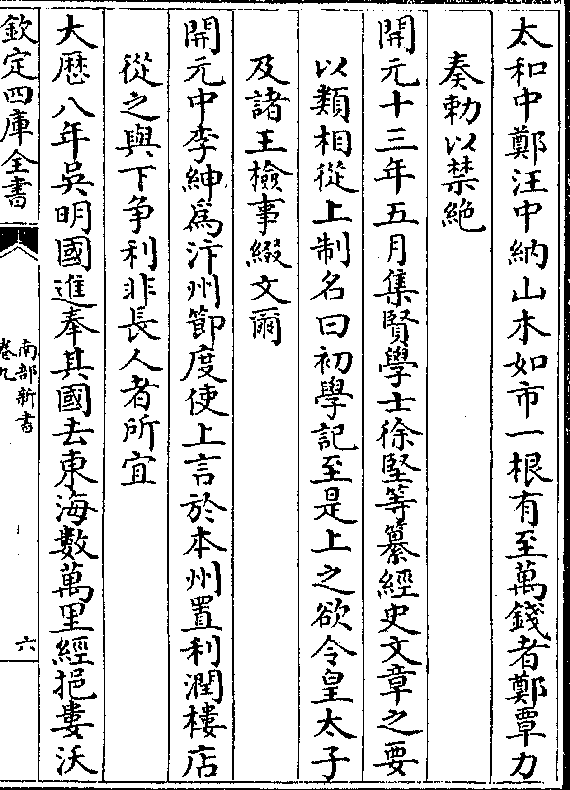 太和中鄭汪中納山木如市一根有至萬錢者鄭覃力
奏勅以禁絶
開元十三年五月集賢學士徐堅等纂經史文章之要
以類相從上制名曰初學記至是上之欲令皇太子
及諸王檢事綴文爾
開元中李紳為汴州節度使上言於本州置利潤樓店
從之與下爭利非長人者所宜
大厯八年吳明國進奉其國去東海數萬里經挹婁沃
欽定四庫全書
南部新書
卷九
六